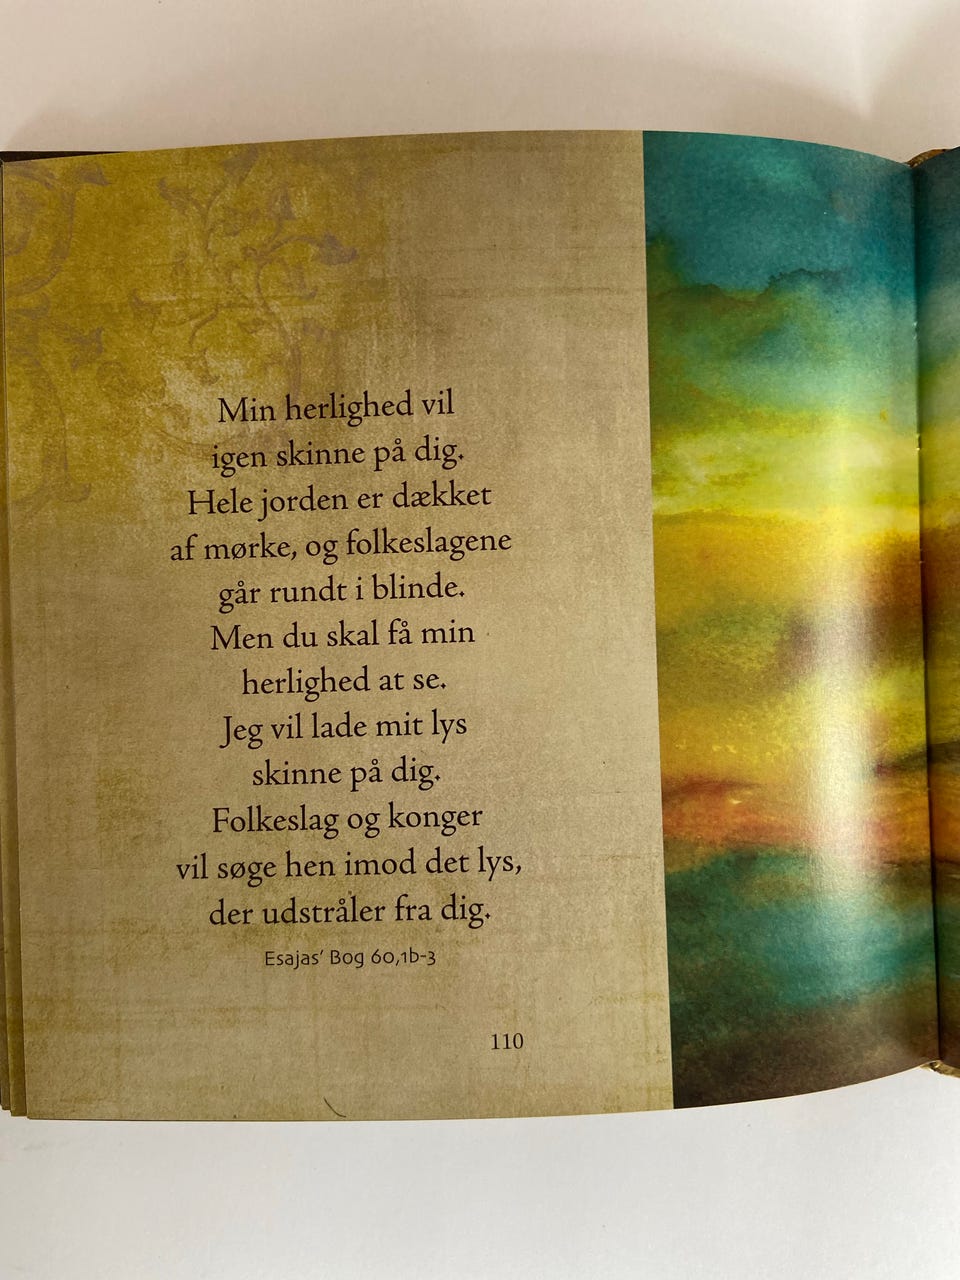 Min herlighed vil
igen skinne på dig.
Hele jorden er dækket
af mørke, og folkeslagene
går rundt i blinde.
Men du skal få min
herlighed at se.
Jeg vil lade mit lys
skinne på dig.
Folkeslag og konger
vil søge hen imod det lys,
der udstråler fra dig.
Esajas’ Bog 60,1b-3
110